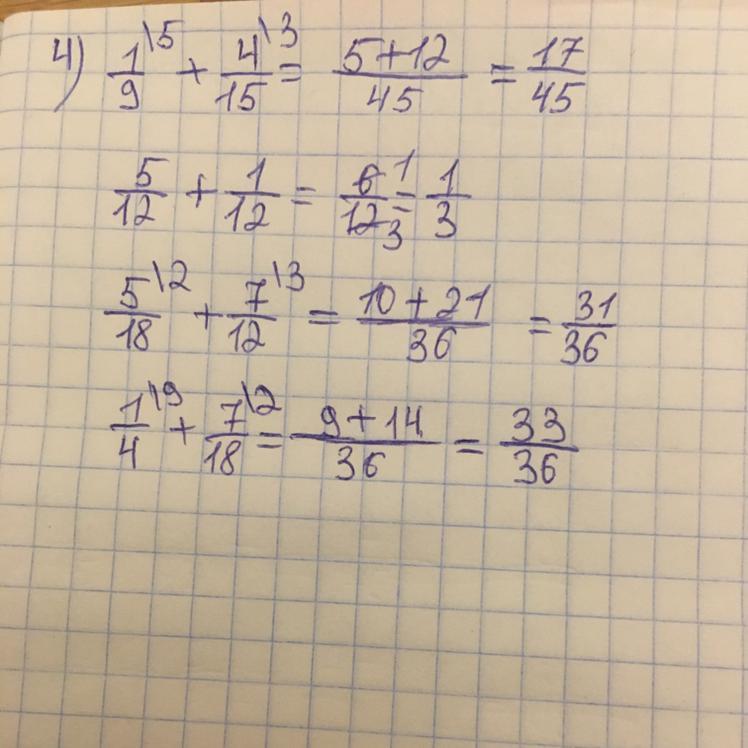 4) 1/9 \5 + 4/15 \3 = (5+12)/45 = 17/45
5/12 + 1/12 = 6/12 1 3 = 1/3
5/18 \2 + 7/12 \3 = (10+21)/36 = 31/36
1/4 \9 + 7/18 \2 = (9+14)/36 = 33/36